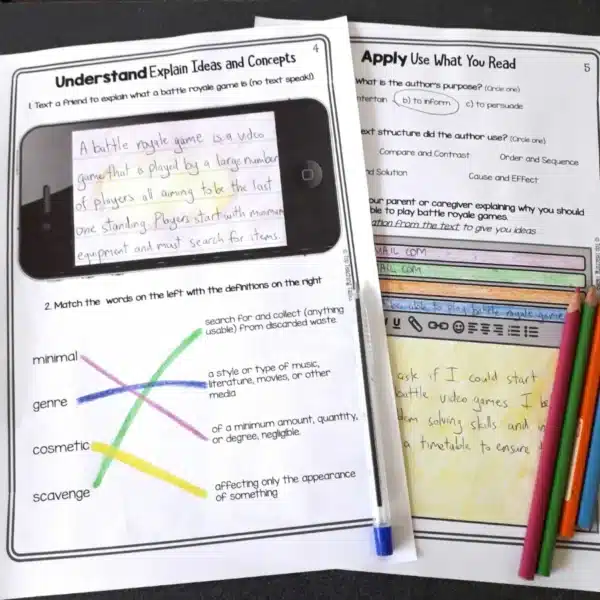 4
Understand Explain Ideas and Concepts
1. Text a friend to explain what a battle royale game is (no text speak!)
A battle royale game is a video
game that a played by a large number
of players all aiming to be the last
one standing. Players start with minimum
equipment and must search for items.
2. Match the words on the left with the definitions on the right
minimal
genre
cosmetic
scavenge
search for and collect (anything
usable) from discarded waste.
a style or type of music,
literature, movies, or other
media
of a minimum amount, quantity,
or degree, negligible.
affecting only the appearance
of something
5
Apply Use What You Read
What is the author's purpose? (Circle one)
entertain b) to inform c) to persuade
text structure did the author use? (Circle one)
Compare and Contrast Order and Sequence
nd Solution Cause and Effect
our parent or caregiver explaining why you should
ble to play battle royale games.
ation from the text to give you ideas
MAIL.COM
AIL.COM
be able to play battle royale game
U
ask if I could start
battle video games. I be
dem solving skills and
a timetable to ensure